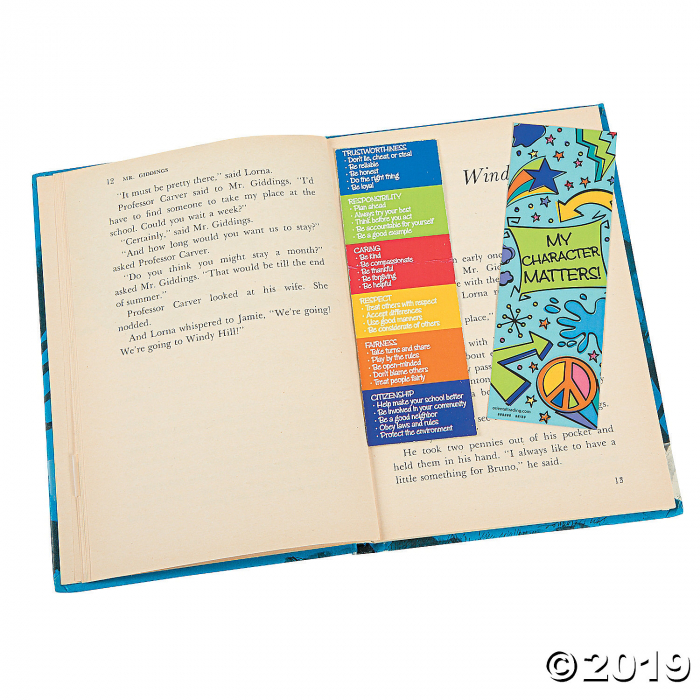 12 MR. GIDDINGS
"It must be pretty there," said Lorna.
Professor Carver said to Mr. Giddings, "I'd
have to find someone to take my place at the
school. Could you wait a week?"
"Certainly," said Mr. Giddings.
"And how long would you want us to stay?"
asked Professor Carver.
"Do you think you might stay a month?"
asked Mr. Giddings. "That would be till the end
of summer."
Professor Carver looked at his wife. She
nodded.
And Lorna whispered to Jamie, "We're going!
We're going to Windy Hill!"
TRUSTWORTHINESS
• Don't lie, cheat, or steal
• Be reliable
• Be honest
• Do the right thing
• Be loyal
RESPONSIBILITY
• Plan ahead
• Always try your best
• Think before you act
• Be accountable for yourself
• Be a good example
CARING
• Be kind
• Be compassionate
• Be thankful
• Be forgiving
• Be helpful
RESPECT
• Treat others with respect
• Accept differences
• Use good manners
• Be considerate of others
FAIRNESS
• Take turns and share
• Play by the rules
• Be open-minded
• Don't blame others
• Treat people fairly
CITIZENSHIP
• Help make your school better
• Be involved in your community
• Be a good neighbor
• Obey laws and rules
• Protect the environment
Wind
early one
Mr. Gid
with the
Lorna
place,"
with
about
sec
He took two pennies out of his pocket and
held them in his hand. "I always like to have a
little something for Bruno," he said.
13
MY
CHARACTER
MATTERS!
©2019